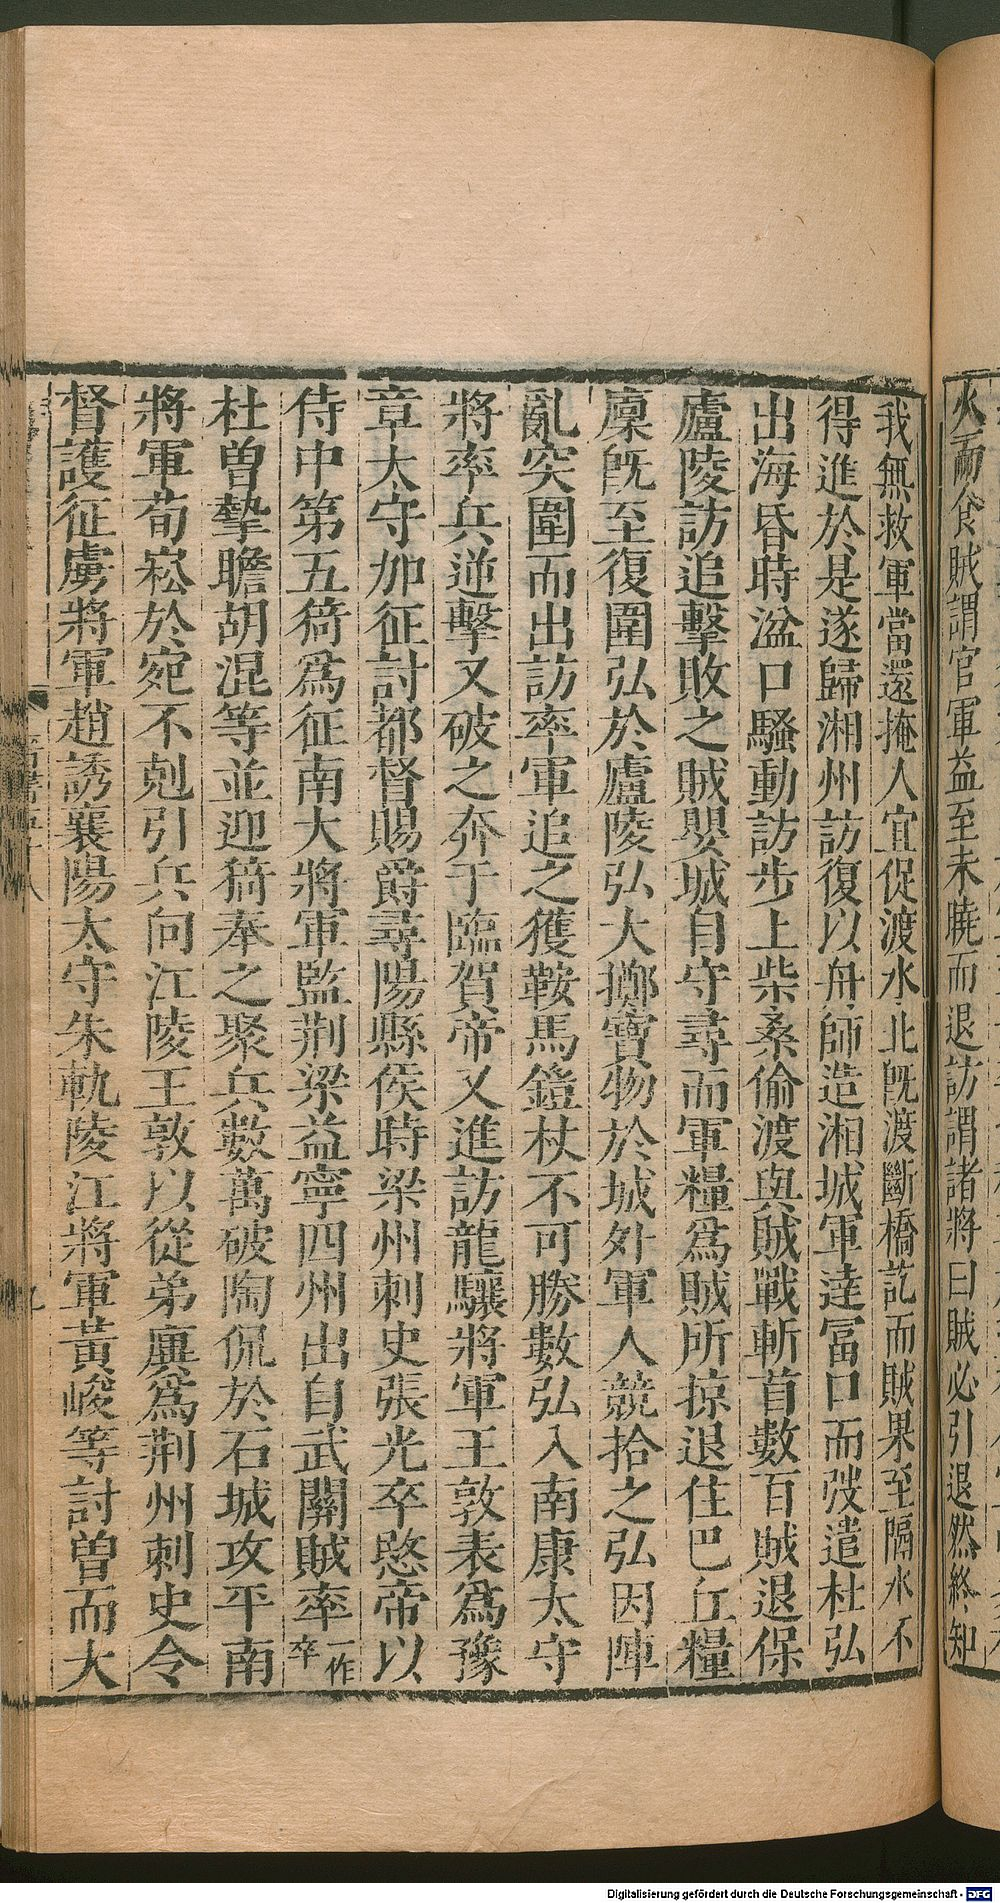 火而食賊謂官軍益至未曉而退訪謂諸將曰賊必引退然終知
我無救軍當還掩人宜促渡水北既渡斷橋訖而賊果至隔水不
得進於是遂歸湘州訪復以舟師造湘城軍達冨口而弢遣杜弘
出海昏時湓口騷動訪步上柴桑偷渡與賊戰斬首數百賊退保
廬陵訪追擊敗之賊嬰城自守尋而軍糧爲賊所掠退住巴丘糧
廩既至復圍弘於廬陵弘大擲寶物於城外軍人競拾之弘因陣
亂突圍而出訪率軍追之獲鞍馬鎧杖不可勝數弘入南康太守
將率兵逆擊又破之奔于臨賀帝又進訪龍驤將軍王敦表爲豫
章太守加征討都督賜爵尋陽縣侯時梁州刺史張光卒愍帝以
侍中第五猗爲征南大將軍監荆梁益寧四州出自武關賊率一作卒
杜曽摯瞻胡混等並迎猗奉之聚兵數萬破陶侃於石城攻平南
將軍荀崧於宛不剋引兵向江陵王敦以從弟廙爲荆州刺史令
督護征虜將軍趙誘襄陽太守朱軌陵江將軍黃峻等討曽而大
Digitalisierung gefördert durch die Deutsche Forschungsgemeinschaft - DFG